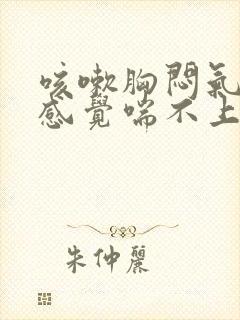 咳嗽胸悶氣
感覺喘不上
朱仲麗